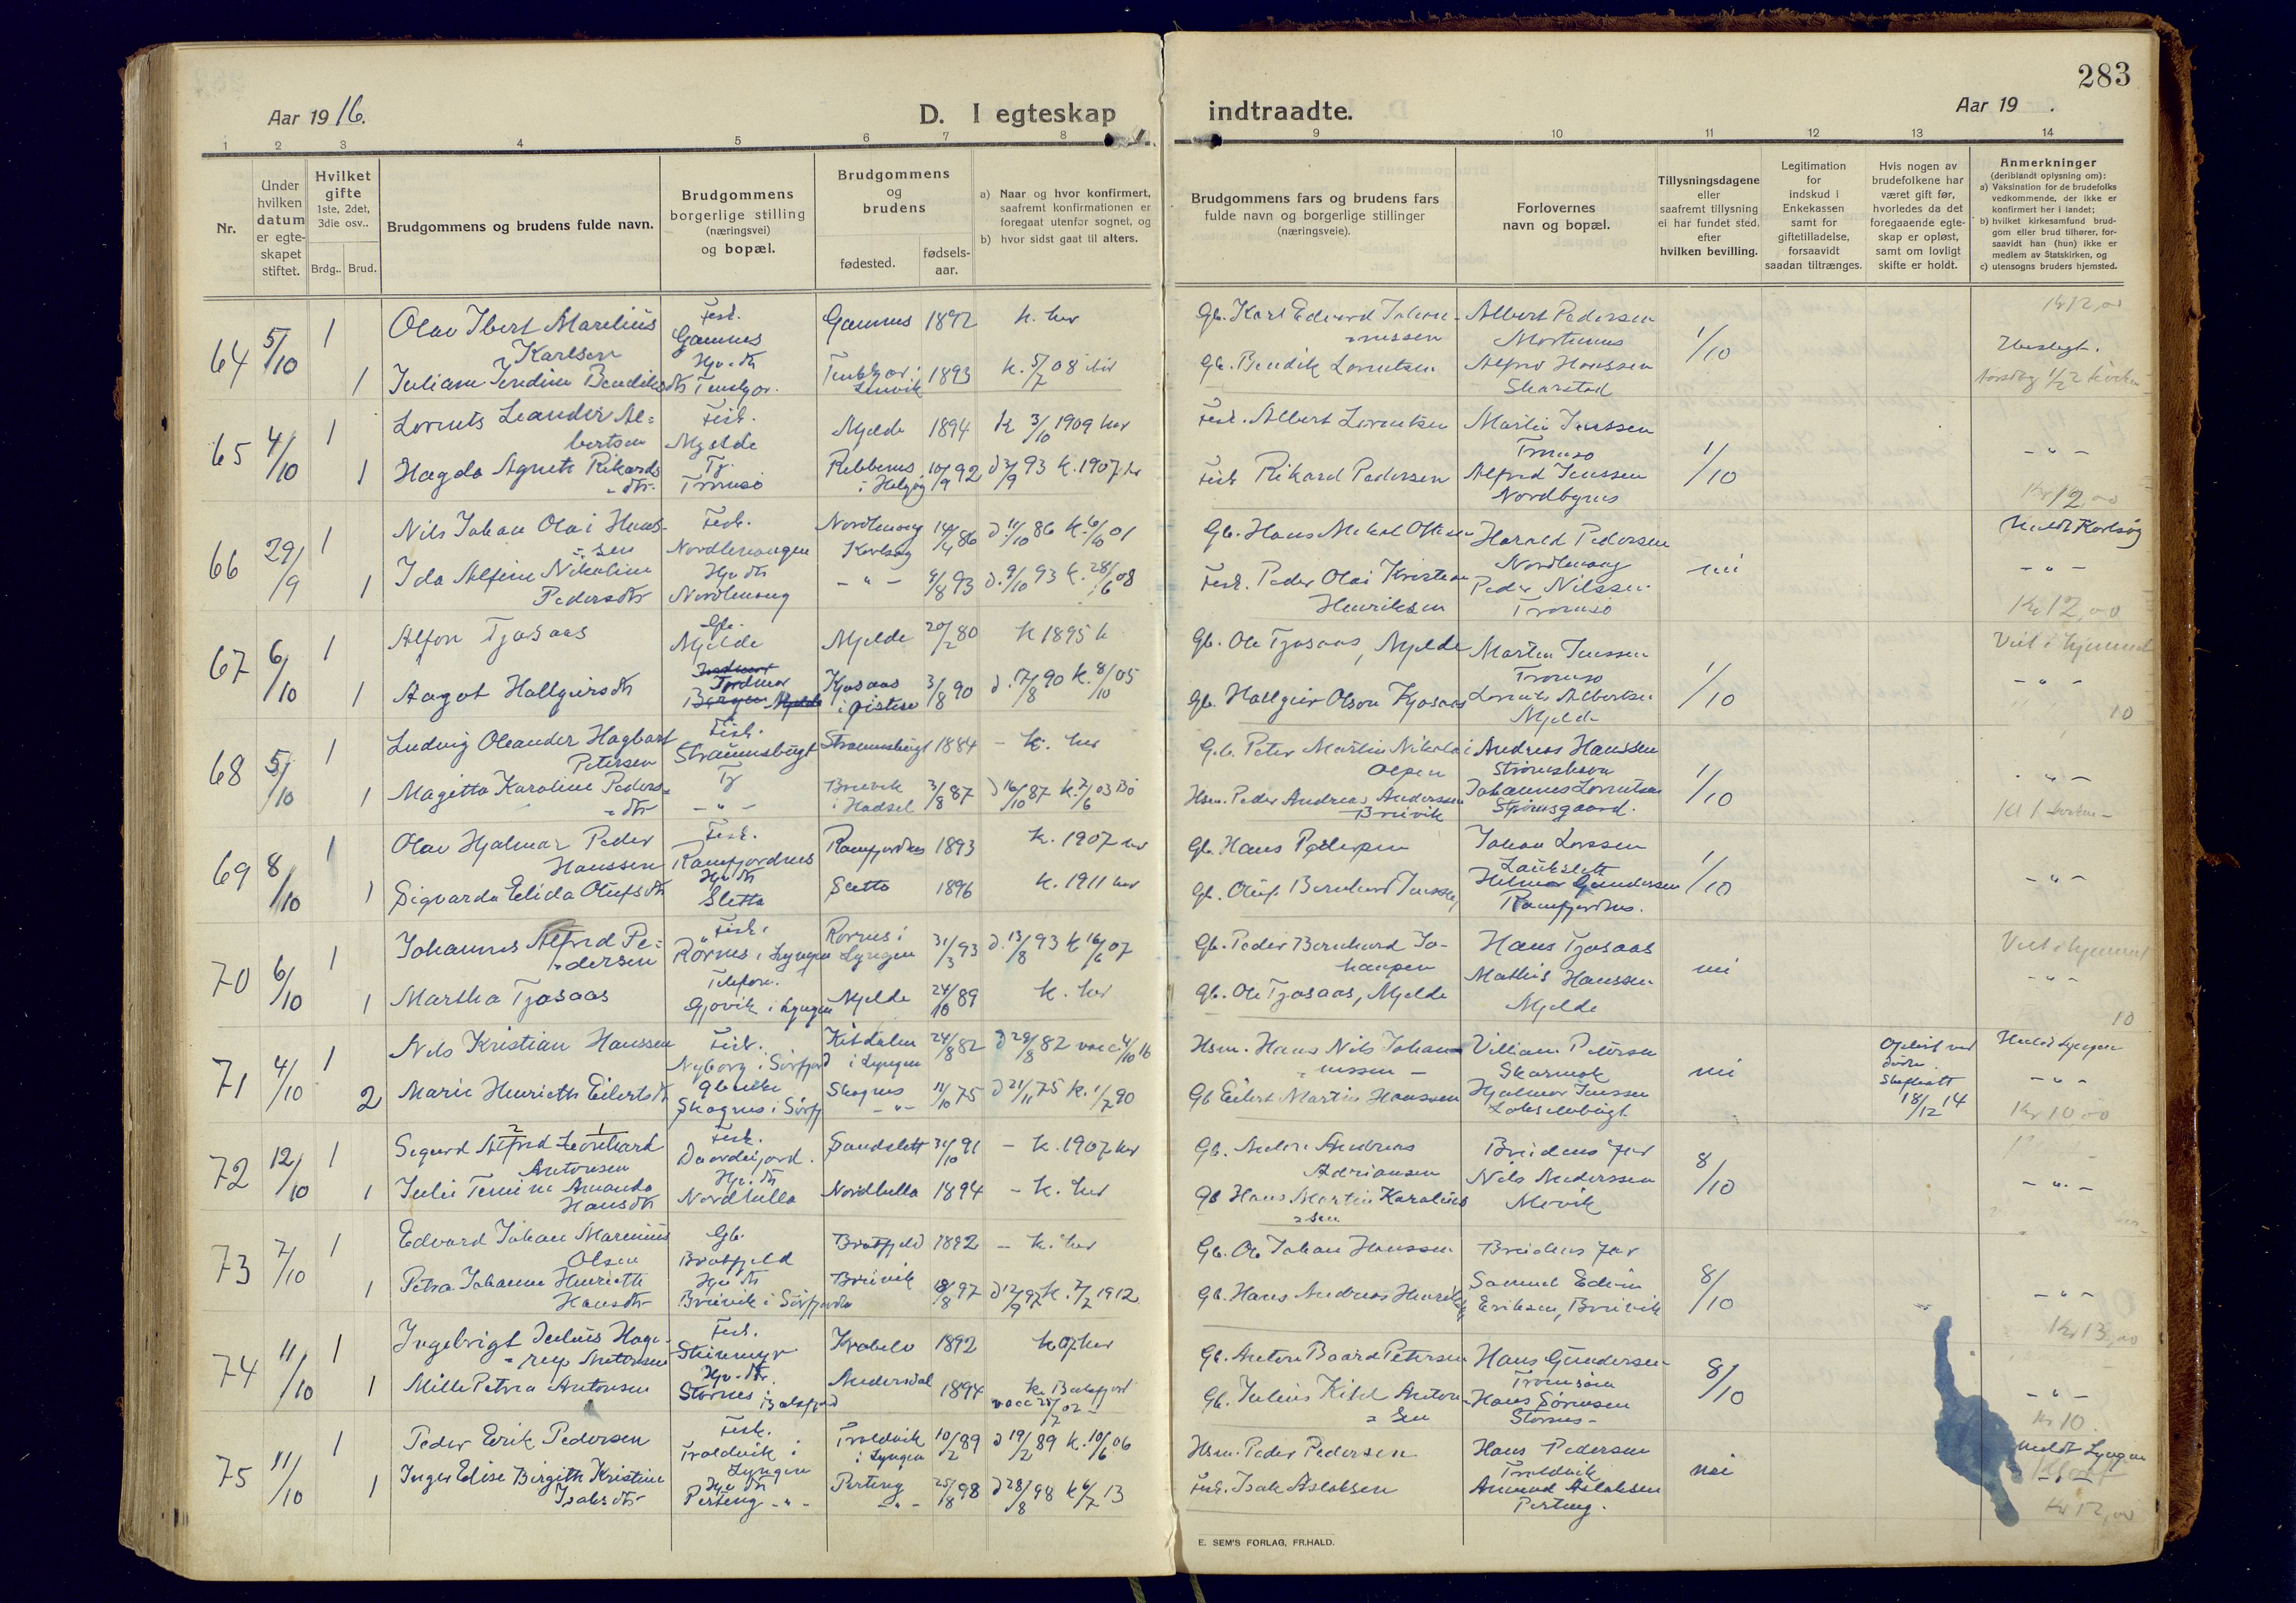 283
Aar 1916.
D. I egteskap
indtraadte.
Aar 19 .
1 2 3 4 5 6 7 8 9 10 11 12 13 14
Nr.
Under
hvilken
datum
er egte-
skapet
stiftet.
Hvilket
gifte
1ste, 2det,
3die osv..
Brdg.. Brud.
Brudgommens og brudens fulde navn.
Brudgommens
borgerlige stilling
(næringsvei)
og bopæl.
Brudgommens
og
brudens
fødested.
fødsels-
aar.
a) Naar og hvor konfirmert,
saafremt konfirmationen er
foregaat utenfor sognet, og
b) hvor sidst gaat til alters.
Brudgommens fars og brudens fars
fulde navn og borgerlige stillinger
(næringsveie).
Forlovernes
navn og bopæl.
Tillysningsdagene
eller
saafremt tillysning
ei har fundet sted,
efter
hvilken bevilling.
Legitimation
for
indskud i
Enkekassen
samt for
giftetilladelse,
forsaavidt
saadan tiltrænges.
Hvis nogen av
brudefolkene har
været gift før,
hvorledes da det
foregaaende egte-
skap er opløst,
samt om lovligt
skifte er holdt.
Anmerkninger
(deriblandt oplysning om):
a) Vaksination for de brudefolks
vedkommende, der ikke er
konfirmert her i landet;
b) hvilket kirkesamfund brud-
gom eller brud tilhører, for-
saavidt han (hun) ikke er
medlem av Statskirken, og
c) utensogns bruders hjemsted.
64 5/10 1 Olav Ibert Marelius Fisk. Gamnes 1892 k. her Gb. Karl Edvard Johan- Albert Pedersen 1/10 Kr 12,00
Karlsen Gamnes nessen Mortennes Ubeslegt.
1 Juliane Jendine Bendiksdtr Hpv. dtr Tenskjær. Tenskjær i Lenvik 1893 k. 5/7 08 ibid Gb. Bendik Lorentsen Alfred Hanssen
Skarstad
65 4/10 1 Lorents Leander Al- Fisk. Mjelde 1894 k 3/10 1909 her Fisk. Albert Lorentsen Martin Jenssen 1/10
bertsen Mjelde Tromsø - " -
1 Hagda Agnete Rikards Tj. Ribbenes 10/9 92 d 3/9 93 k. 1907 her Fisk Rikard Pedersen Alfred Jenssen
dtr. Tromsø i Helgøy Nordbynes Kr 12,00
66 29/9 1 Nils Johan Olai Hans- Fisk. Nordlenang 14/4 86 d 11/10 86 k. 6/10 01 Gb. Hans Mikal Olsen Harald Pedersen nei Meldt Karlsøy
sen Nordlenangen Karlsøy Nordlenang
1 Ida Alfine Nikoline Hpv dtr - " - 4/8 93 d. 9/10 93 k. 28/6 08 Fisk. Peder Olai Kristian Peder Nilssen - " -
Pedersdtr Nordlenang Henriksen Tromsø Kr 12,00
67 6/10 1 Alfon Tjosaas Gb. Mjelde Mjelde 20/2 80 k 1895 h Gb. Ole Tjosaas, Mjelde Martin Jenssen 1/10 Viet i hjemmet
Tromsø
1 Aagot Hallgeirsdtr Bergen Mjelde Kjosaas 3/8 90 d. 17/8 90 k. 8/10 05 Gb. Hallgeir Olson Kjosaas Lorents Albertsen - " -
i Øistese Mjelde 10
68 5/10 1 Ludvig Oleander Hagbart Fisk. Straumsbugt 1884 - k. her Gb. Peter Martin Nikolai Andreas Hanssen 1/10
Petersen Straumsbugt Olsen Strømshavn
1 Magitta Karoline Peders- Tj Breivik 3/8 87 d 16/10 87 k. 7/6 03 Bø Hsm. Peder Andreas Anderssen Johannes Lorentsen - " -
dtr - " - i Hadsel Breivik Strømsgaard.
69 8/10 1 Olav Hjalmar Peder Fisk. Ramfjordnes 1893 k. 1907 her Gb. Hans Pedersen Johan Larssen 1/10
Hanssen Ramfjordnes Laukslett
1 Sigvarda Elida Olufsdtr Hpv dtr Sletta Sletta 1896 k. 1911 her Gb. Oluf Bernhard Jenssen Helmer Gundersen - " -
Ramfjordnes.
70 6/10 1 Johannes Alfred Pe- Fisk. Rørnes i 31/3 93 d. 13/8 93 k 16/6 07 Gb. Peder Bernhard Jo- Hans Tjosaas nei Viet i hjemmet
dersen Rørnes i Lyngen Lyngen hansen
1 Martha Tjosaas Telefon. Mjelde 24/10 89 k. her Gb. Ole Tjosaas, Mjelde Mathis Hanssen - " -
Gjøvik i Lyngen Mjelde 10
71 4/10 1 Nils Kristian Hanssen Fisk. Kitdalen 24/8 82 d 29/8 82 vacc 4/10 16 Hsm. Hans Nils Johan- Villiam Petersen nei Opløst ved Meldt Lyngen
Nyborg i Sørfjord i Lyngen nessen - Skarmok døden.
2 Marie Henriette Eilertsdtr Gbenke Skognes 11/10 75 d 21/11 75 k. 1/7 90 Gb Eilert Martin Hanssen Hjalmar Jenssen Skifteatt - " -
Skognes i Sørfj - " - Lakselvbugt 18/12 14 Kr 10 00
72 12/10 1 Sigurd Alfred Leonhard Fisk. Sandslett 31/10 91 - k. 1907 her Gb. Anton Andreas Brudens far 8/10
Antonsen Daavøifjord. Adriansen
1 Julie Temine Amanda Hpv. dtr Nordhella 1894 - k. her Gb Hans Martin Karolius Nils Anderssen - " -
Hansdtr Nordhella sen Mevik
73 7/10 1 Edvard Johan Marenius Gb. Bratfjeld 1892 - k. her Gb. Ole Johan Hanssen Brudens far 8/10
Olsen Bratfjeld
1 Petra Johanne Henriette Hpv dtr Breivik 18/8 97 d 12/9 97 k. 7/7 1912 Gb. Hans Andreas Henriksen Samuel Edvin - " -
Hansdtr Breivik i Sørfjorden Eriksen, Breivik
74 11/10 1 Ingebrigt Julius Hage- Fisk. Krabelv 1892 k 07 her Gb. Anton Baard Petersen Hans Gundersen 8/10 Kr 13,00
rup Antonsen Steinmyr Tromsøen
1 Mille Petrea Antonsen Hpv. dtr. Andersdal 1894 k. Balsfjord Gb. Julius Kild Anton- Hans Sørensen - " -
Stornes i Balsfjord vacc 25/7 02 - sen Stornes - Kr 10.
75 11/10 1 Peder Erik Pedersen Fisk. Troldvik 10/2 89 d 19/2 89 k. 10/6 06 Hsm. Peder Pedersen Hans Pedersen nei Meldt Lyngen
Troldvik i Lyngen i Lyngen Troldvik
1 Inger Elise Birgitte Kristine Hpv dtr Perteng 25/8 98 d 28/8 98 k 6/7 13 Fisk. Isak Aslaksen Amund Aslaksen
Isaksdtr Perteng - " - - " - Perteng. Kr 12,00
E. SEM'S FORLAG, FR.HALD.